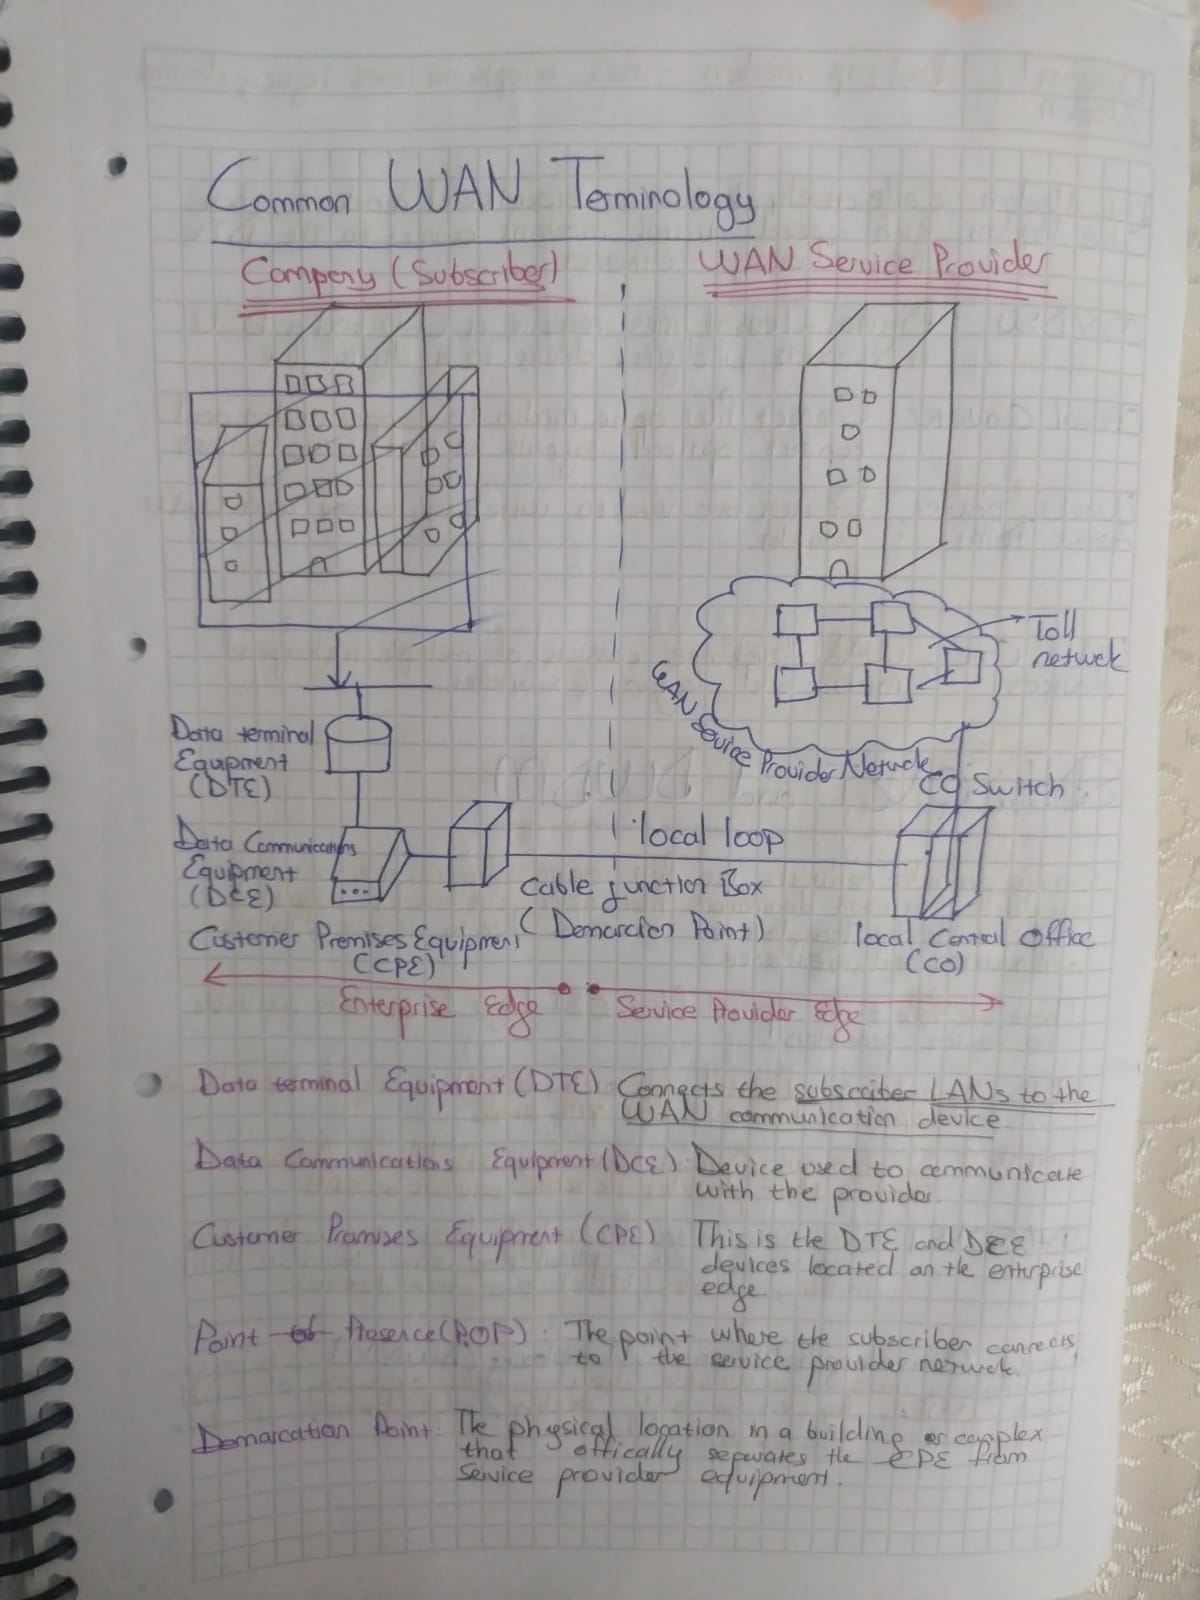 Common WAN Terminology
Company (Subscriber)
WAN Service Provider
Toll
netwok
WAN Service Provider Netwock
Data terminal
Equipment
(DTE)
CO Switch
Data Communications
Equipment
(DCE)
local loop
Cable junction Box
(Demarcion Point)
Customer Premises Equipment
(CPE)
local Central Office
(CO)
Enterprise Edge
Service Provider Edge
Data terminal Equipment (DTE) Connects the subscriber LANs to the
WAN communication device.
Data Communications Equipment (DCE): Device used to communicate
with the provider.
Customer Premises Equipment (CPE) This is the DTE and DCE
devices located on the enterprise
edge.
Point of Presence (POP): The point where the subscriber connects
to the service provider network.
Demarcation Point: The physical location in a building or complex
that offically seperates the CPE from
service provider equipment.